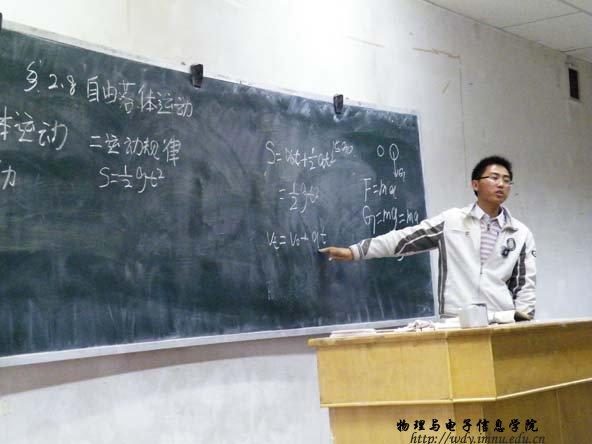 §2.8 自由落体运动
体运动
二运动规律
S=½gt²
S=v₀t+½at²
=½gt²
Vt=V₀+at
F=ma
G=mg=ma
物理与电子信息学院
http://wdy.imnu.edu.cn